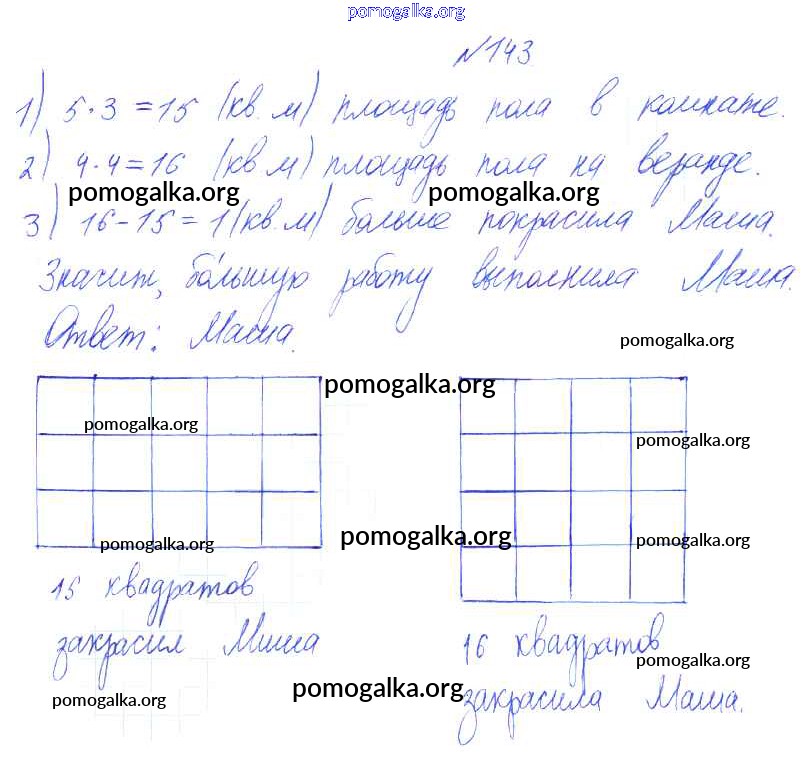 pomogalka.org
№143.
1) 5·3=15 (кв. м) площадь пола в комнате.
2) 4·4=16 (кв м) площадь пола на веранде.
pomogalka.org pomogalka.org
3) 16-15=1 (кв. м) больше покрасила Маша.
Значит, бо́льшую работу выполнила Маша.
Ответ: Маша.
pomogalka.org
pomogalka.org
pomogalka.org
pomogalka.org
pomogalka.org
pomogalka.org
pomogalka.org
15 квадратов
закрасил Миша
16 квадратов
pomogalka.org
pomogalka.org
pomogalka.org
закрасила Маша.